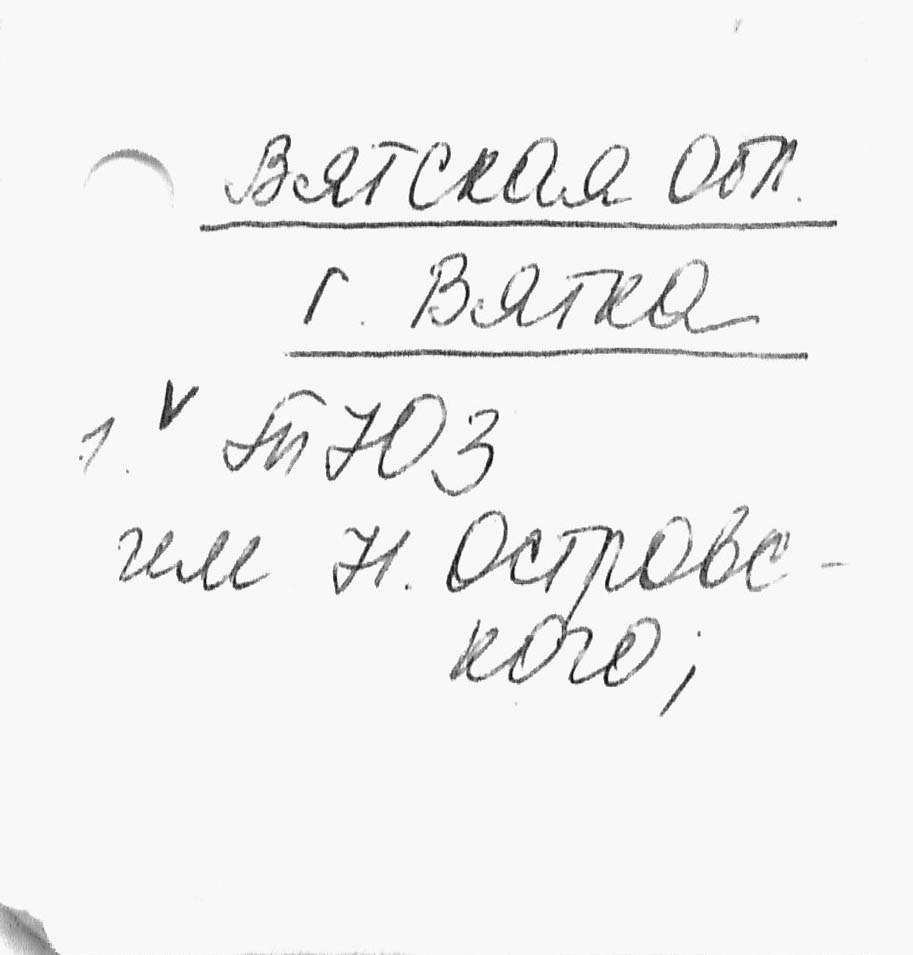 Вятская обл.
г. Вятка
1. V ТЮЗ
им Н. Островс-
кого;